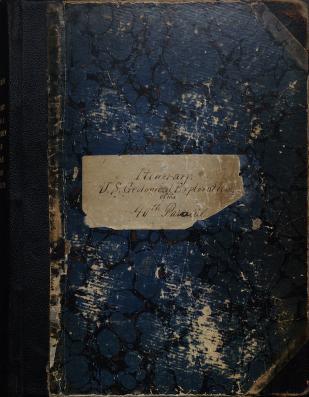 Itinerary.
U. S. Geological Exploration
of the
40th Parallel